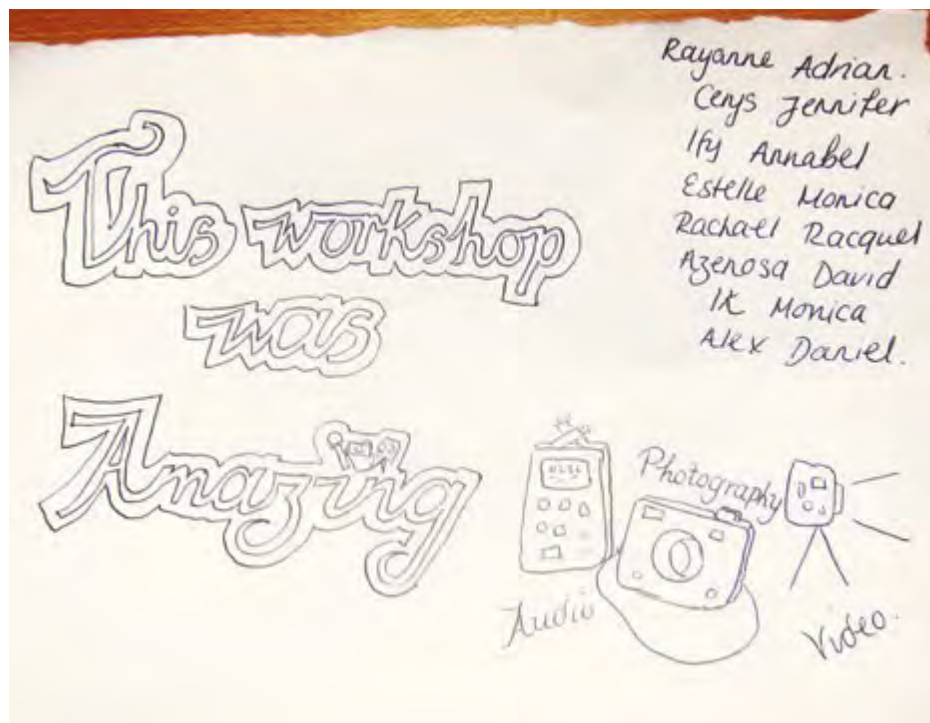 This workshop
was
Amazing
Rayanne Adrian.
Cerys Jennifer
Ify Annabel
Estelle Monica
Rachael Racquel
Azenosa David
IK Monica
Alex Daniel.
Photography
Audio
Video.